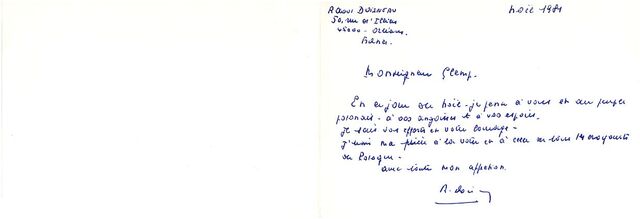 Raoul DOISNEAU
50, rue d'Illiers
45000 - Orléans.
France.
Noël 1981
Monseigneur Glemp.
En ce jour de Noël - je pense à vous et au peuple
polonais - à vos angoisses et à vos espoirs.
Je sais vos efforts et votre courage -
J'unis ma prière à la votre et à celle de tous les croyants
de Pologne -
avec toute mon affection.